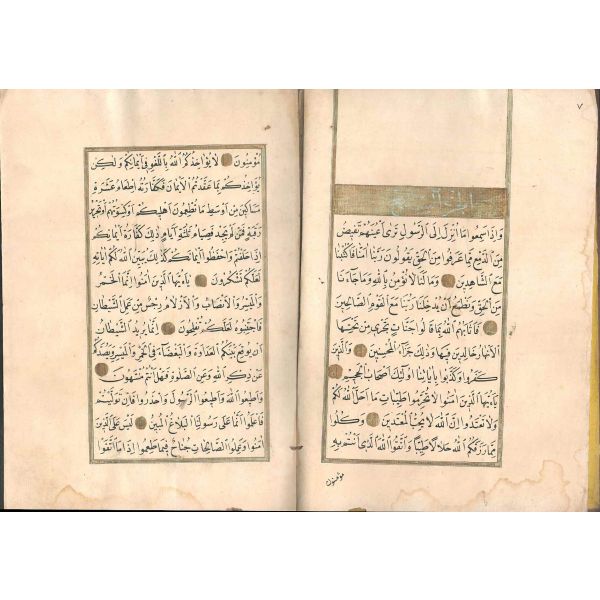 ٧
الجزء السابع
وَاِذَا سَمِعُوا مَٓا اُنْزِلَ اِلَى الرَّسُولِ تَرٰٓى اَعْيُنَهُمْ تَفٖيضُ
مِنَ الدَّمْعِ مِمَّا عَرَفُوا مِنَ الْحَقِّ يَقُولُونَ رَبَّنَٓا اٰمَنَّا فَاكْتُبْنَا
مَعَ الشَّاهِدٖينَ وَمَا لَنَا لَا نُؤْمِنُ بِاللّٰهِ وَمَا جَٓاءَنَا
مِنَ الْحَقِّ وَنَطْمَعُ اَنْ يُدْخِلَنَا رَبُّنَا مَعَ الْقَوْمِ الصَّالِحٖينَ
فَاَثَابَهُمُ اللّٰهُ بِمَا قَالُوا جَنَّاتٍ تَجْرٖى مِنْ تَحْتِهَا
الْاَنْهَارُ خَالِدٖينَ فٖيهَا وَذٰلِكَ جَزَٓاءُ الْمُحْسِنٖينَ وَالَّذٖينَ
كَفَرُوا وَكَذَّبُوا بِاٰيَاتِنَٓا اُولٰٓئِكَ اَصْحَابُ الْجَحٖيمِ
يَٓا اَيُّهَا الَّذٖينَ اٰمَنُوا لَا تُحَرِّمُوا طَيِّبَاتِ مَٓا اَحَلَّ اللّٰهُ لَكُمْ
وَلَا تَعْتَدُوا اِنَّ اللّٰهَ لَا يُحِبُّ الْمُعْتَدٖينَ وَكُلُوا
مِمَّا رَزَقَكُمُ اللّٰهُ حَلَالًا طَيِّبًا وَاتَّقُوا اللّٰهَ الَّذٖٓى اَنْتُمْ بِهٖ
مؤمنون
مُؤْمِنُونَ لَا يُؤَاخِذُكُمُ اللّٰهُ بِاللَّغْوِ فٖٓى اَيْمَانِكُمْ وَلٰكِنْ
يُؤَاخِذُكُمْ بِمَا عَقَّدْتُمُ الْاَيْمَانَ فَكَفَّارَتُهُٓ اِطْعَامُ عَشَرَةِ
مَسَاكٖينَ مِنْ اَوْسَطِ مَا تُطْعِمُونَ اَهْلٖيكُمْ اَوْ كِسْوَتُهُمْ اَوْ تَحْرٖيرُ
رَقَبَةٍ فَمَنْ لَمْ يَجِدْ فَصِيَامُ ثَلٰثَةِ اَيَّامٍ ذٰلِكَ كَفَّارَةُ اَيْمَانِكُمْ
اِذَا حَلَفْتُمْ وَاحْفَظُٓوا اَيْمَانَكُمْ كَذٰلِكَ يُبَيِّنُ اللّٰهُ لَكُمْ اٰيَاتِهٖ
لَعَلَّكُمْ تَشْكُرُونَ يَٓا اَيُّهَا الَّذٖينَ اٰمَنُٓوا اِنَّمَا الْخَمْرُ
وَالْمَيْسِرُ وَالْاَنْصَابُ وَالْاَزْلَامُ رِجْسٌ مِنْ عَمَلِ الشَّيْطَانِ
فَاجْتَنِبُوهُ لَعَلَّكُمْ تُفْلِحُونَ اِنَّمَا يُرٖيدُ الشَّيْطَانُ
اَنْ يُوقِعَ بَيْنَكُمُ الْعَدَاوَةَ وَالْبَغْضَٓاءَ فِى الْخَمْرِ وَالْمَيْسِرِ وَيَصُدَّكُمْ
عَنْ ذِكْرِ اللّٰهِ وَعَنِ الصَّلٰوةِ فَهَلْ اَنْتُمْ مُنْتَهُونَ
وَاَطٖيعُوا اللّٰهَ وَاَطٖيعُوا الرَّسُولَ وَاحْذَرُوا فَاِنْ تَوَلَّيْتُمْ
فَاعْلَمُٓوا اَنَّمَا عَلٰى رَسُولِنَا الْبَلَاغُ الْمُبٖينُ لَيْسَ عَلَى الَّذٖينَ
اٰمَنُوا وَعَمِلُوا الصَّالِحَاتِ جُنَاحٌ فٖيمَا طَعِمُٓوا اِذَا مَا اتَّقَوْا